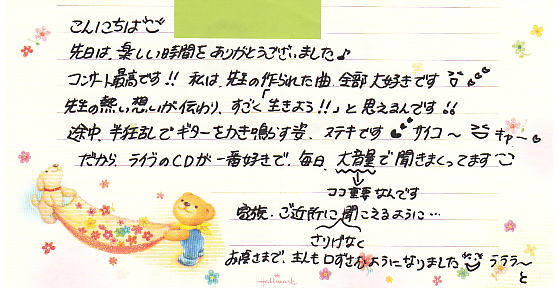 こんにちは
先日は、楽しい時間をありがとうございました♪
コンサート最高です!! 私は、先生の作られた曲、全部大好きです
先生の熱い想いが伝わり、すごく「生きよう!!」と思えるんです!!
途中、半狂乱でギターをかき鳴らす姿、ステキです サイコ〜 キャー
だから、ライヴのCDが一番好きで、毎日、大音量で聞きまくってます
ココ重要なんです
家族、ご近所に聞こえるように…
さりげなく
お陰さまで、主人も口ずさむようになりました ラララ〜
と
Hallmark